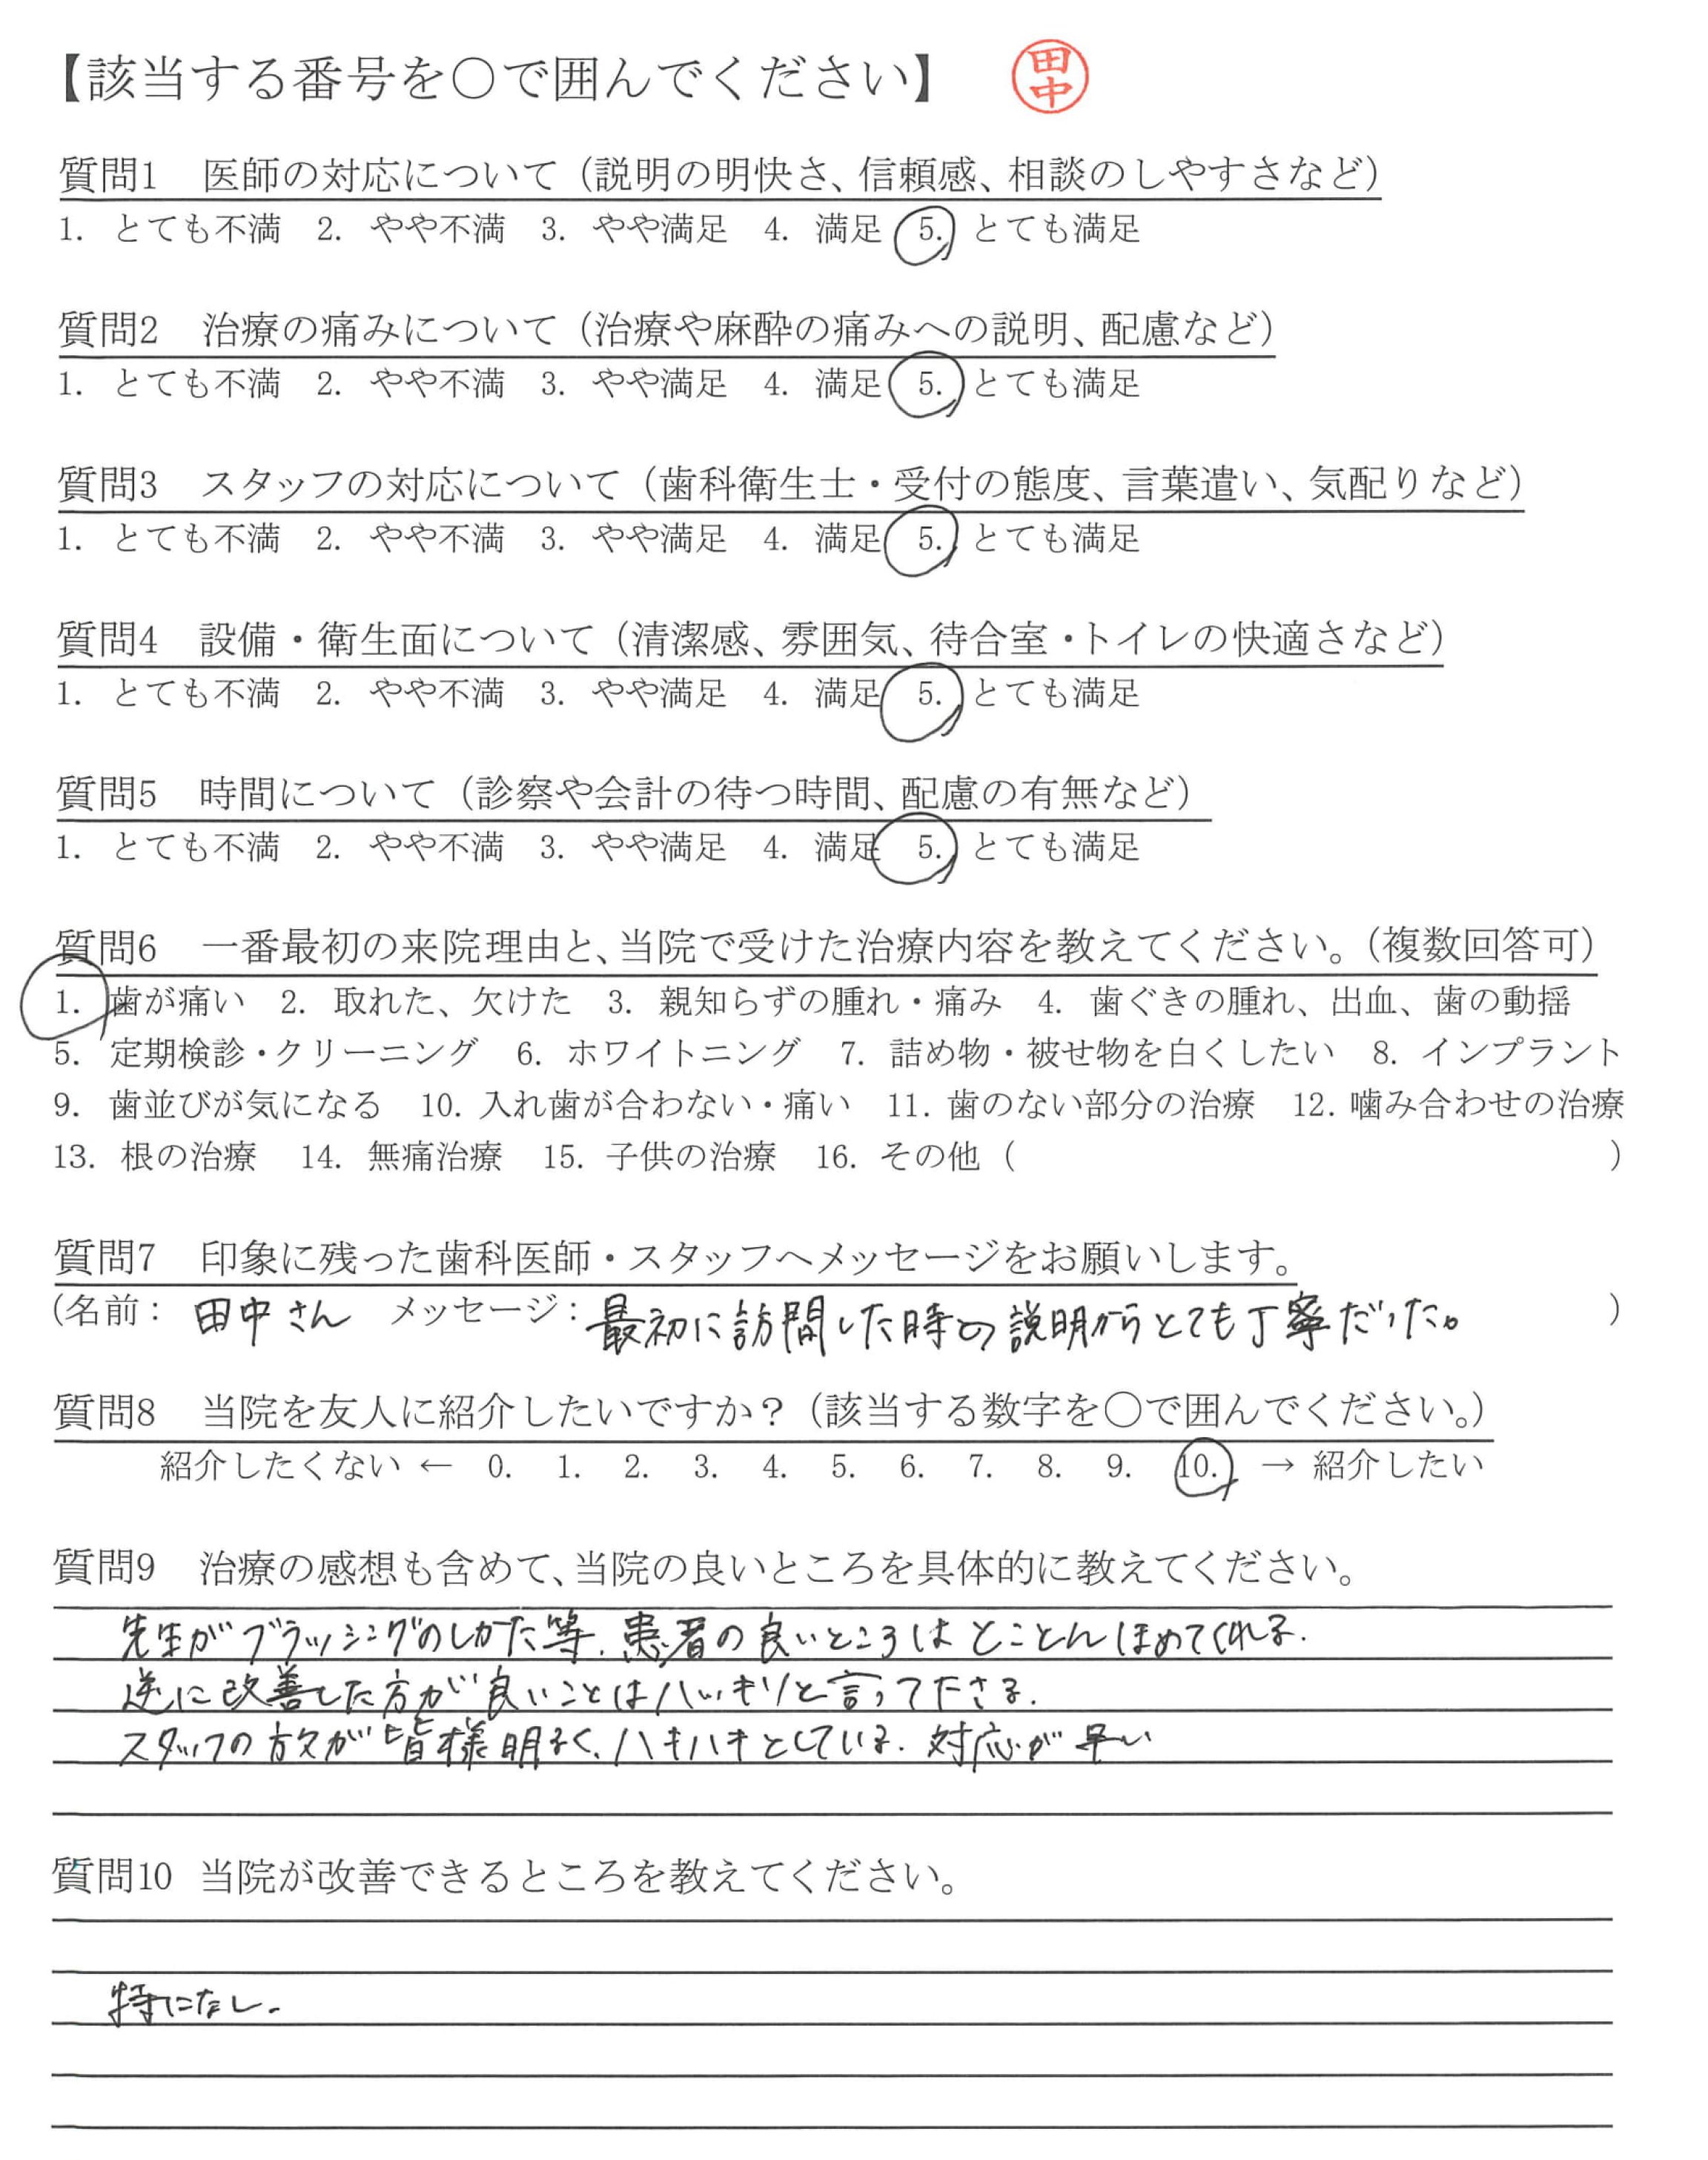 【該当する番号を○で囲んでください】 田中
質問1 医師の対応について（説明の明快さ、信頼感、相談のしやすさなど）
1. とても不満 2. やや不満 3. やや満足 4. 満足 5. とても満足
質問2 治療の痛みについて（治療や麻酔の痛みへの説明、配慮など）
1. とても不満 2. やや不満 3. やや満足 4. 満足 5. とても満足
質問3 スタッフの対応について（歯科衛生士・受付の態度、言葉遣い、気配りなど）
1. とても不満 2. やや不満 3. やや満足 4. 満足 5. とても満足
質問4 設備・衛生面について（清潔感、雰囲気、待合室・トイレの快適さなど）
1. とても不満 2. やや不満 3. やや満足 4. 満足 5. とても満足
質問5 時間について（診察や会計の待つ時間、配慮の有無など）
1. とても不満 2. やや不満 3. やや満足 4. 満足 5. とても満足
質問6 一番最初の来院理由と、当院で受けた治療内容を教えてください。（複数回答可）
1. 歯が痛い 2. 取れた、欠けた 3. 親知らずの腫れ・痛み 4. 歯ぐきの腫れ、出血、歯の動揺
5. 定期検診・クリーニング 6. ホワイトニング 7. 詰め物・被せ物を白くしたい 8. インプラント
9. 歯並びが気になる 10. 入れ歯が合わない・痛い 11. 歯のない部分の治療 12. 噛み合わせの治療
13. 根の治療 14. 無痛治療 15. 子供の治療 16. その他（ ）
質問7 印象に残った歯科医師・スタッフへメッセージをお願いします。
（名前： 田中さん メッセージ：最初に訪問した時の説明からとても丁寧だった。 ）
質問8 当院を友人に紹介したいですか？（該当する数字を○で囲んでください。）
紹介したくない ← 0. 1. 2. 3. 4. 5. 6. 7. 8. 9. 10. → 紹介したい
質問9 治療の感想も含めて、当院の良いところを具体的に教えてください。
先生がブラッシングのしかた等、患者の良いところはとことんほめてくれる.
逆に改善した方が良いことはハッキリと言って下さる.
スタッフの方々が皆様明るく、ハキハキとしている. 対応が早い
質問10 当院が改善できるところを教えてください。
特になし.